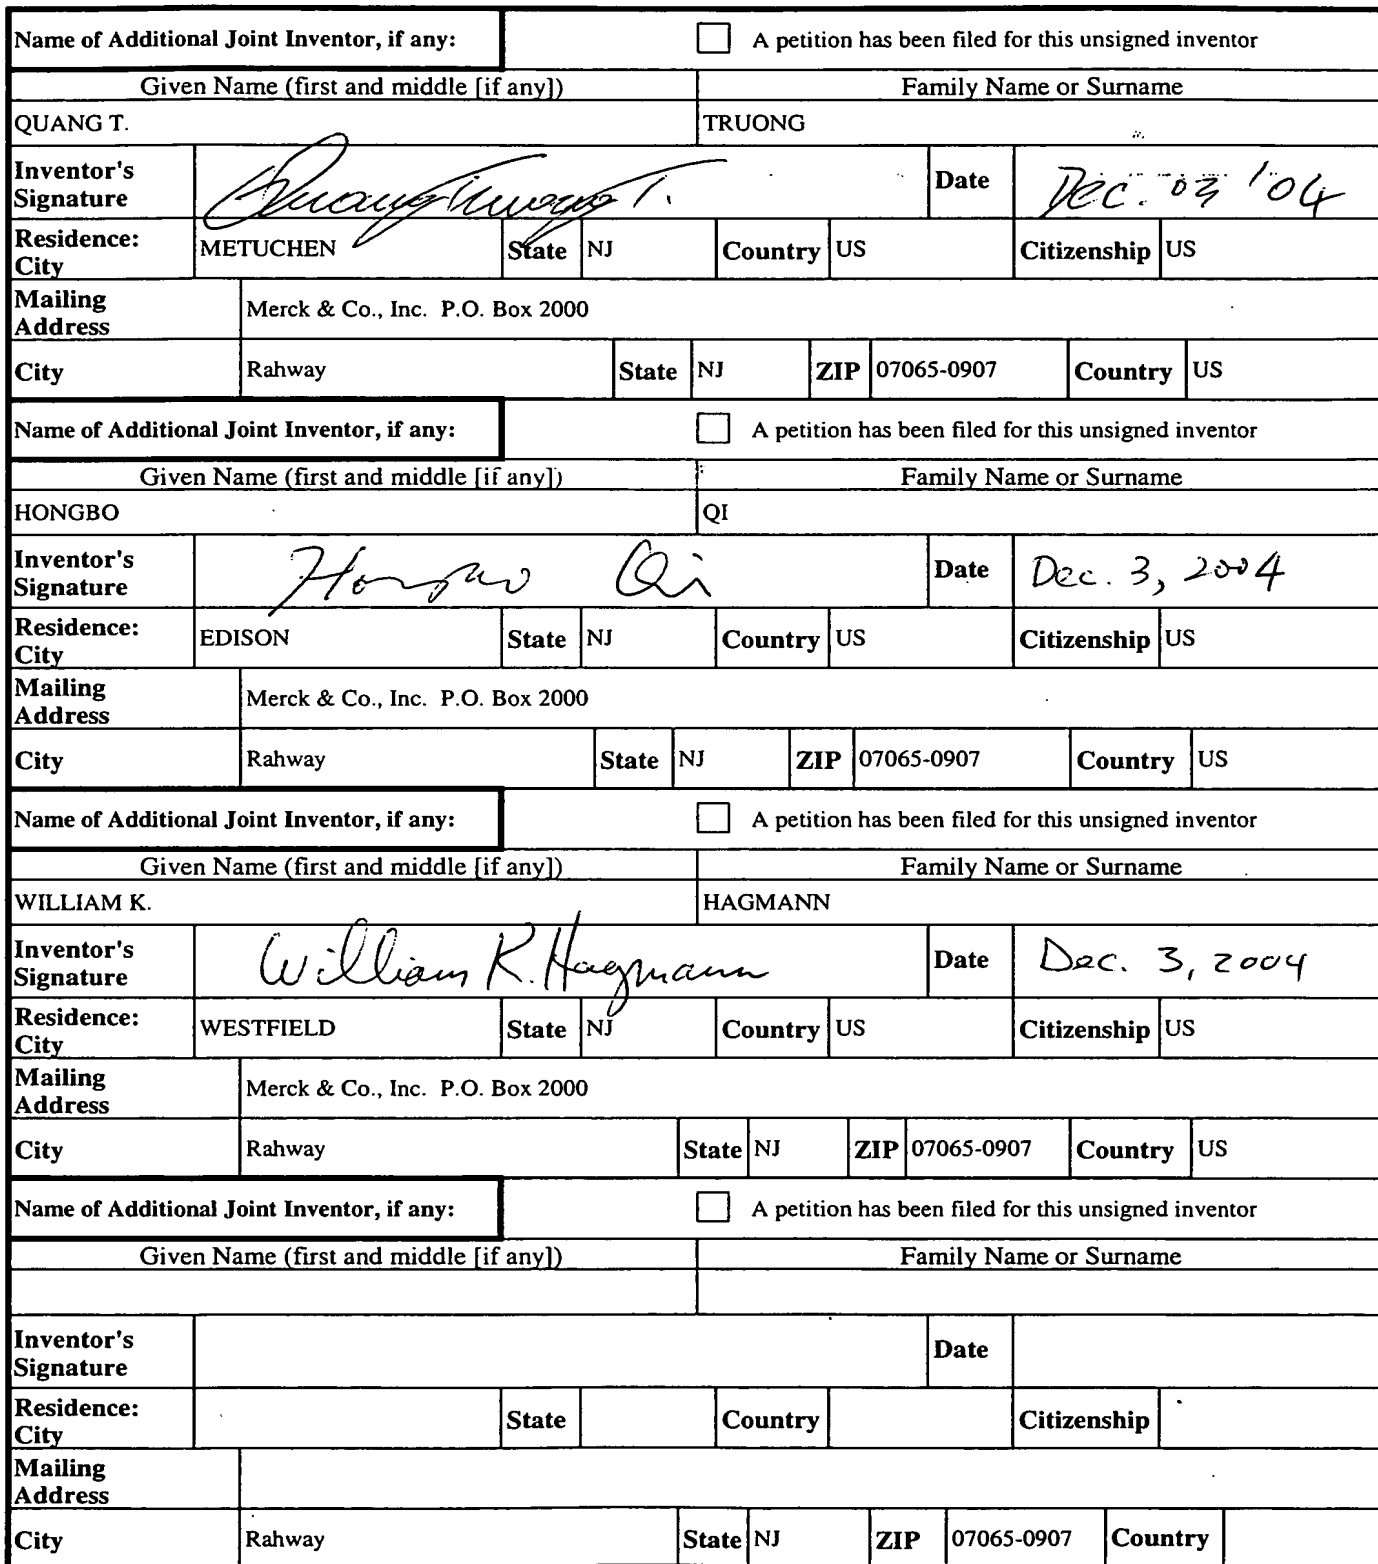 Name of Additional Joint Inventor, if any: A petition has been filed for this unsigned inventor
Given Name (first and middle [if any]) Family Name or Surname
QUANG T. TRUONG
Inventor's Signature Quang Truong T. Date Dec. 03 '04
Residence: City METUCHEN State NJ Country US Citizenship US
Mailing Address Merck & Co., Inc. P.O. Box 2000
City Rahway State NJ ZIP 07065-0907 Country US
Name of Additional Joint Inventor, if any: A petition has been filed for this unsigned inventor
Given Name (first and middle [if any]) Family Name or Surname
HONGBO QI
Inventor's Signature Hongbo Qi Date Dec. 3, 2004
Residence: City EDISON State NJ Country US Citizenship US
Mailing Address Merck & Co., Inc. P.O. Box 2000
City Rahway State NJ ZIP 07065-0907 Country US
Name of Additional Joint Inventor, if any: A petition has been filed for this unsigned inventor
Given Name (first and middle [if any]) Family Name or Surname
WILLIAM K. HAGMANN
Inventor's Signature William K. Hagmann Date Dec. 3, 2004
Residence: City WESTFIELD State NJ Country US Citizenship US
Mailing Address Merck & Co., Inc. P.O. Box 2000
City Rahway State NJ ZIP 07065-0907 Country US
Name of Additional Joint Inventor, if any: A petition has been filed for this unsigned inventor
Given Name (first and middle [if any]) Family Name or Surname
Inventor's Signature Date
Residence: City State Country Citizenship
Mailing Address
City Rahway State NJ ZIP 07065-0907 Country